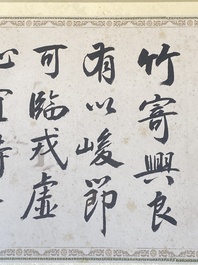 竹寄興良
有以峻節
可臨戎虛
心宜待